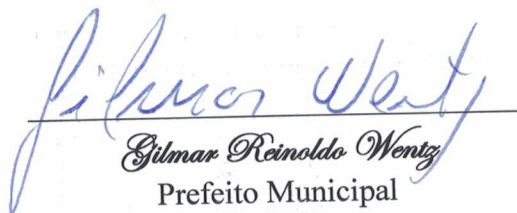 Gilmar Wentz
Gilmar Reinoldo Wentz
Prefeito Municipal